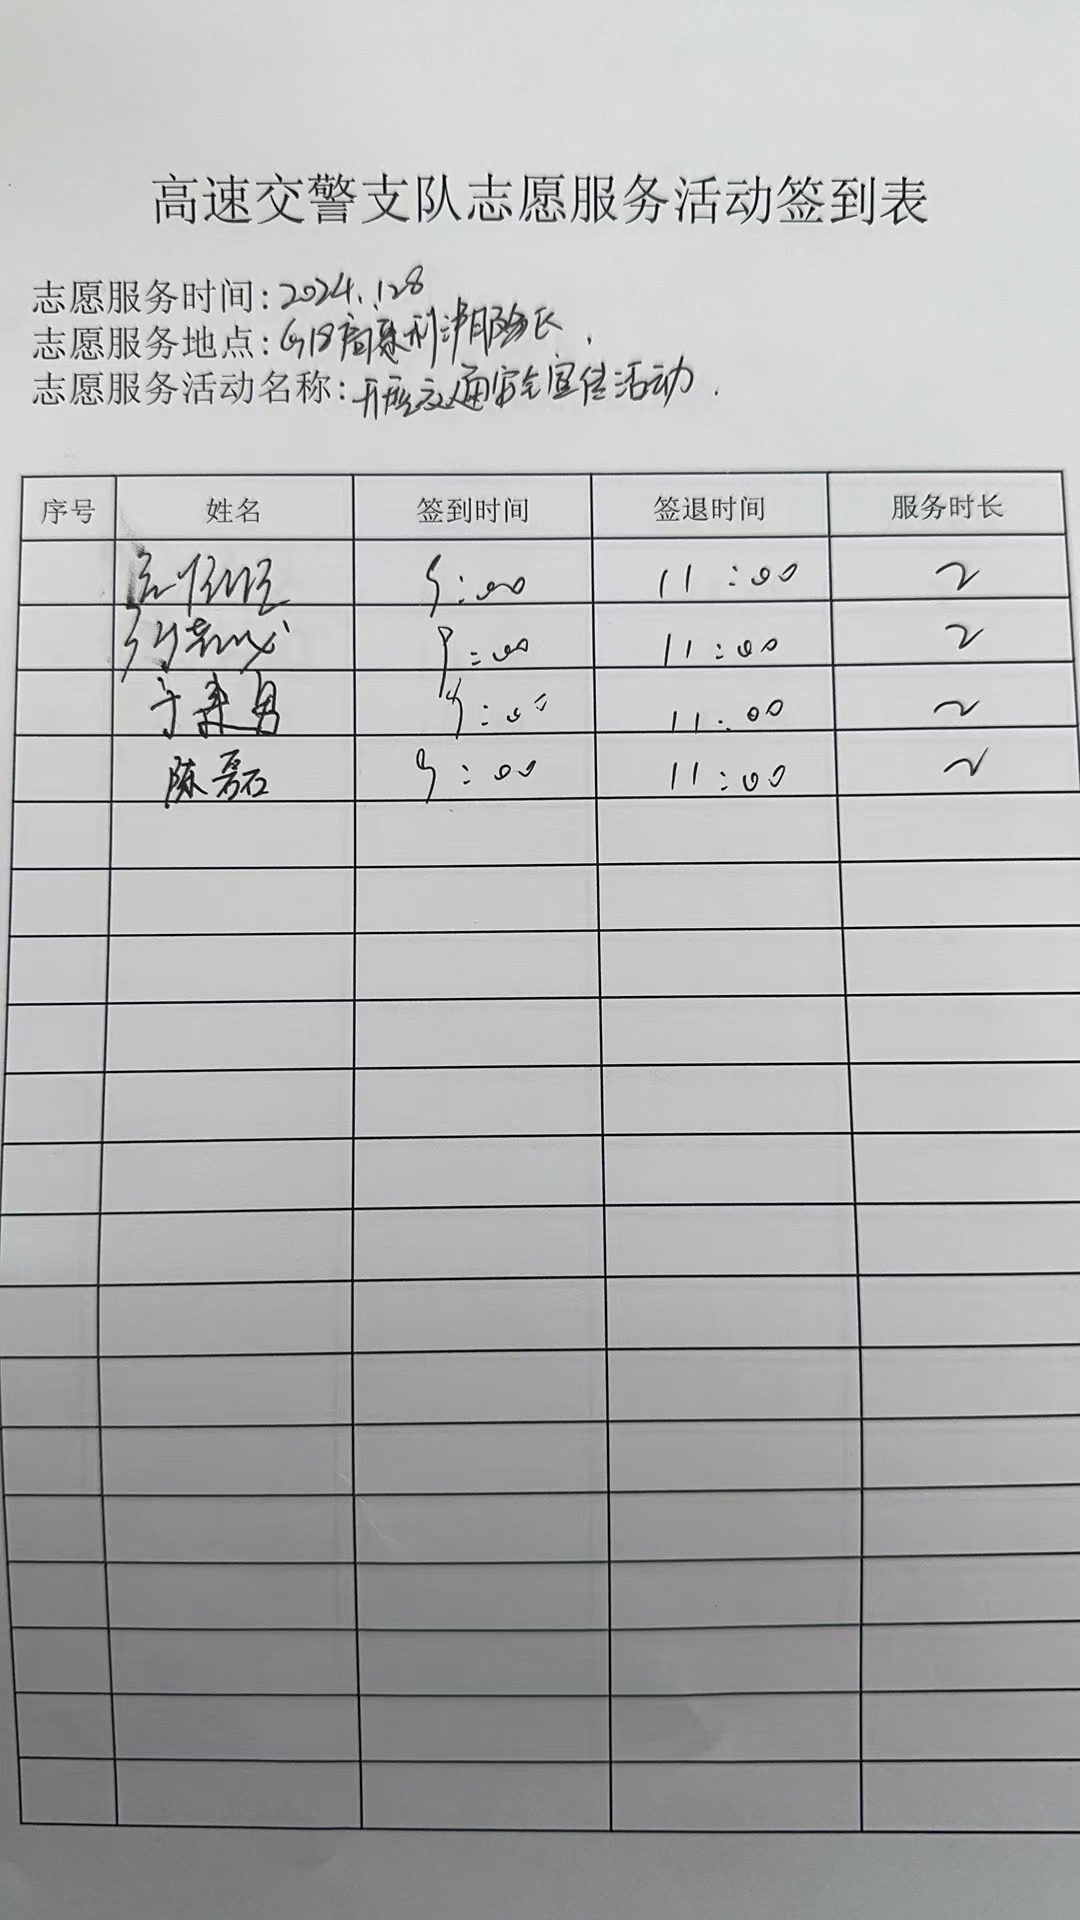 高速交警支队志愿服务活动签到表
志愿服务时间:2024.1.28
志愿服务地点:G18高速利津服务区.
志愿服务活动名称:开展交通安全宣传活动.
序号 姓名 签到时间 签退时间 服务时长
9:00 11:00 2
9:00 11:00 2
于建勇 9:00 11:00 2
陈磊 9:00 11:00 2